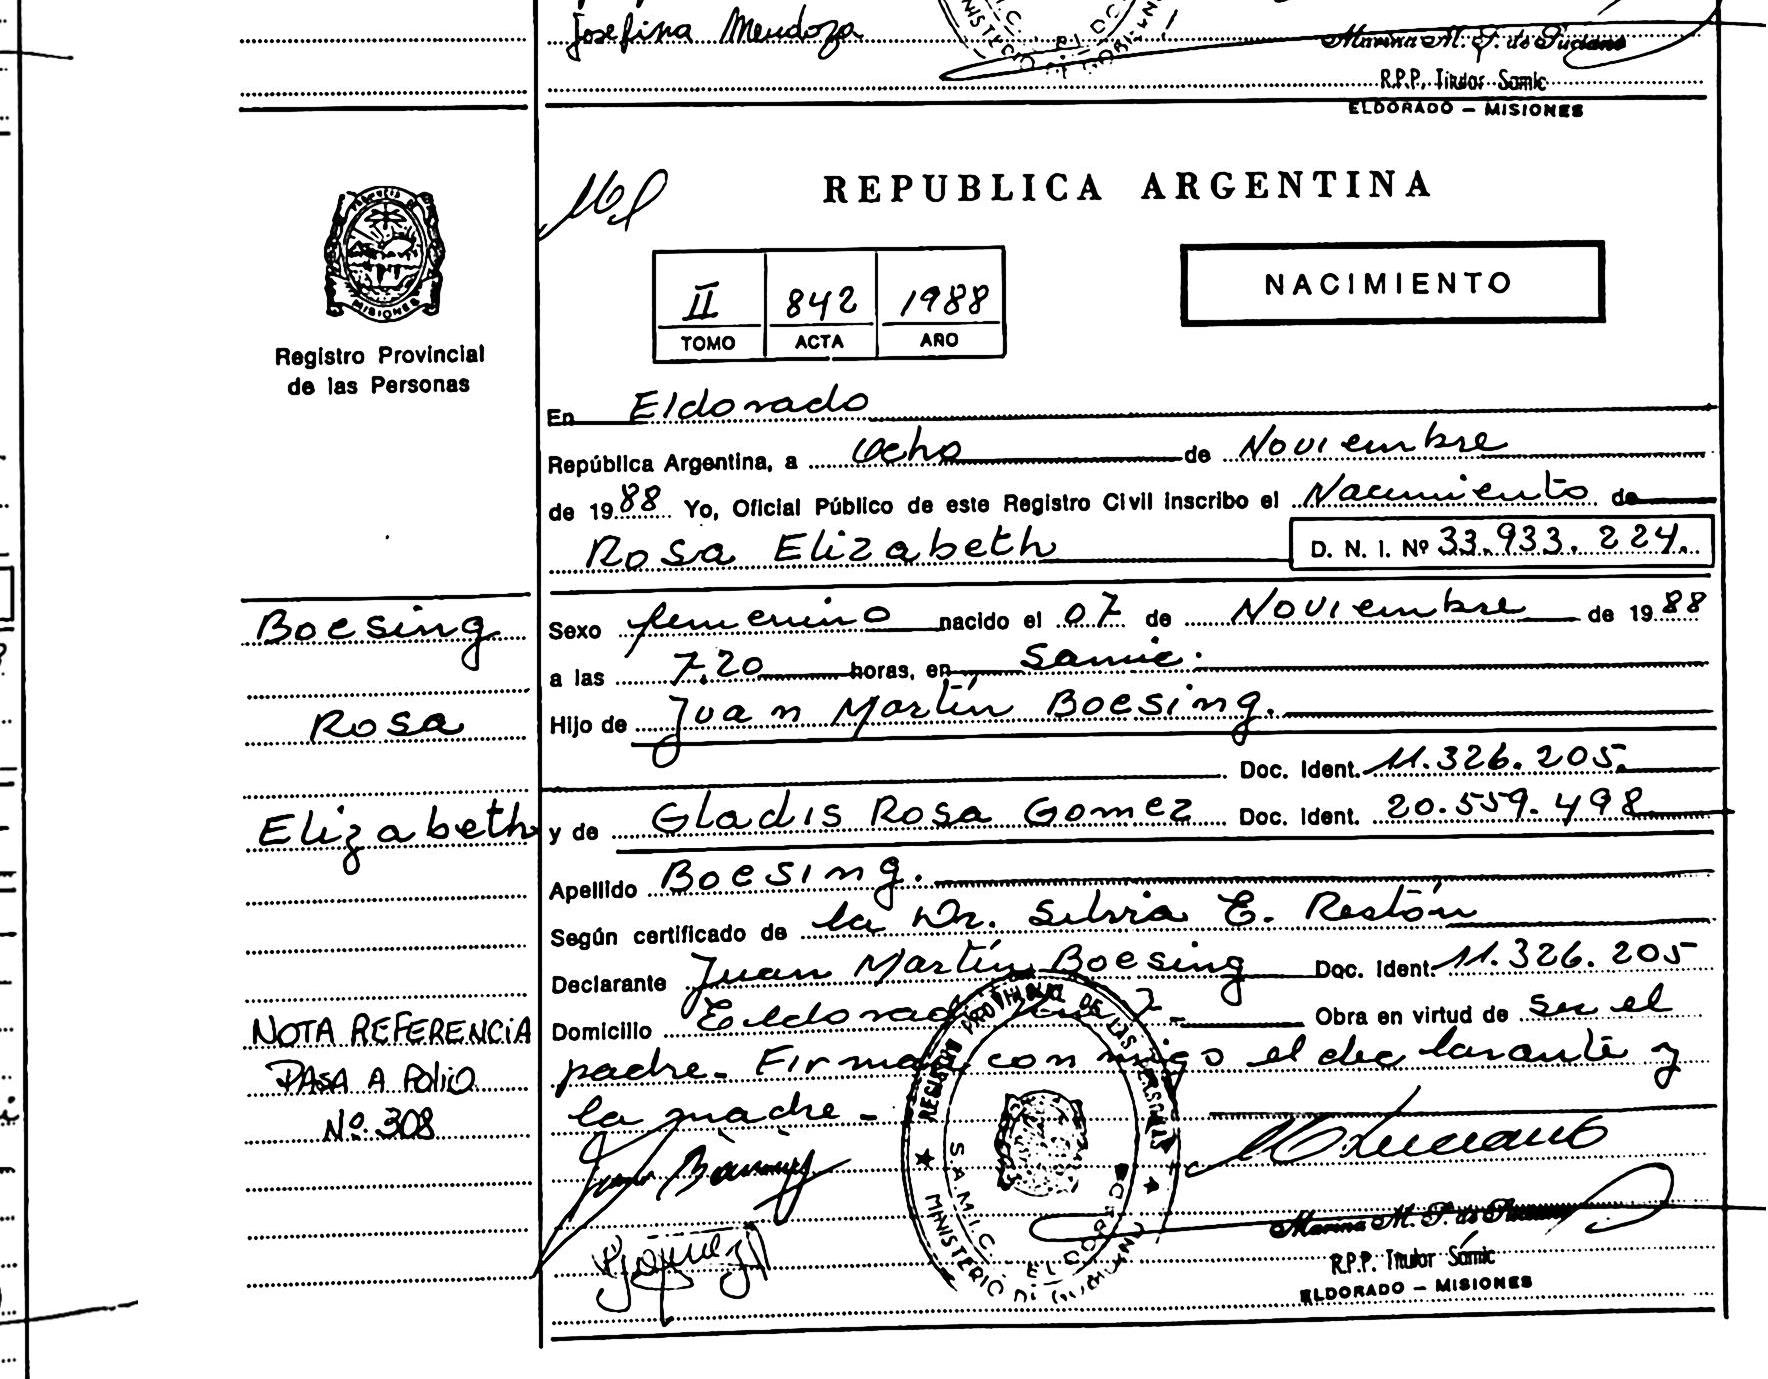 Josefina Mendoza
Marina M. P. de
R.P.P. Titular Samic
ELDORADO — MISIONES
REPUBLICA ARGENTINA
MISIONES
Registro Provincial
de las Personas
II 842 1988
TOMO ACTA AÑO
NACIMIENTO
En Eldorado
República Argentina, a ocho de Noviembre
de 1988 Yo, Oficial Público de este Registro Civil inscribo el Nacimiento de
Rosa Elizabeth D. N. I. Nº 33.933.224.
Boesing
Rosa
Elizabeth
Sexo femenino nacido el 07 de Noviembre de 1988
a las 7,20 horas, en Samic.
Hijo de Juan Martín Boesing.
Doc. Ident. 11.326.205.
y de Gladis Rosa Gomez Doc. Ident. 20.559.498
Apellido Boesing.
Según certificado de la Dr. Silvia E. Restón
Declarante Juan Martín Boesing Doc. Ident. 11.326.205
Domicilio Eldorado Km 7- Obra en virtud de ser el
padre- Firman con migo el declarante y
la madre-
NOTA REFERENCIA
PASA A FOLIO
Nº 308
REGISTRO PROVINCIAL DE LAS PERSONAS
S.A.M.I.C. ELDORADO
Marina M. P. de
R.P.P. Titular Sámic
ELDORADO — MISIONES